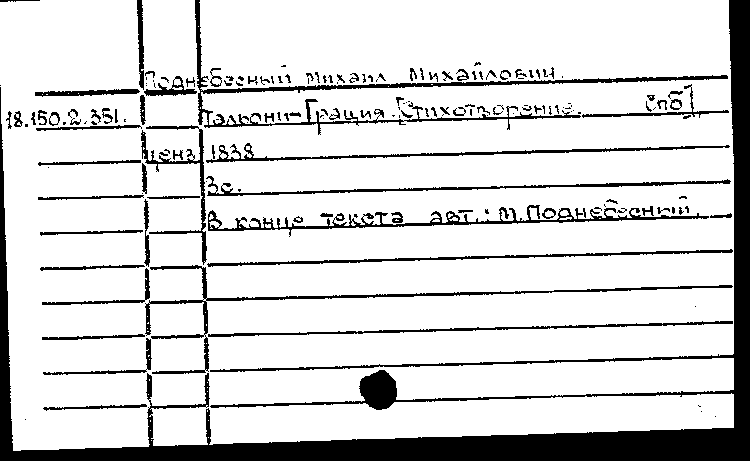 Поднебесный Михаил Михайлович.
18.150.2.351. Тальони-Грация. [Стихотворение. Спб],
ценз. 1838.
3с.
В конце текста авт.: М. Поднебесный.